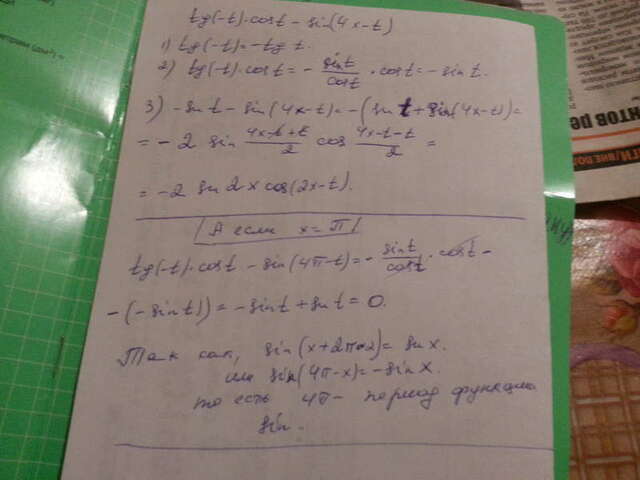 tg(-t)·cost - sin(4x-t)
1) tg(-t) = -tg t.
2) tg(-t)·cost = - sint/cost · cost = - sin t.
3) - sin t - sin(4x-t) = -(sin t + sin(4x-t)) =
= - 2 sin (4x-t+t)/2 cos (4x-t-t)/2 =
= -2 sin 2x cos(2x-t).
А если x = π!
tg(-t)·cost - sin(4π-t) = - sint/cost · cost -
-(-sin t)) = - sin t + sin t = 0.
Так как, sin(x+2π·2) = sin x.
или sin(4π-x) = -sin x.
то есть 4π - период функции
sin.